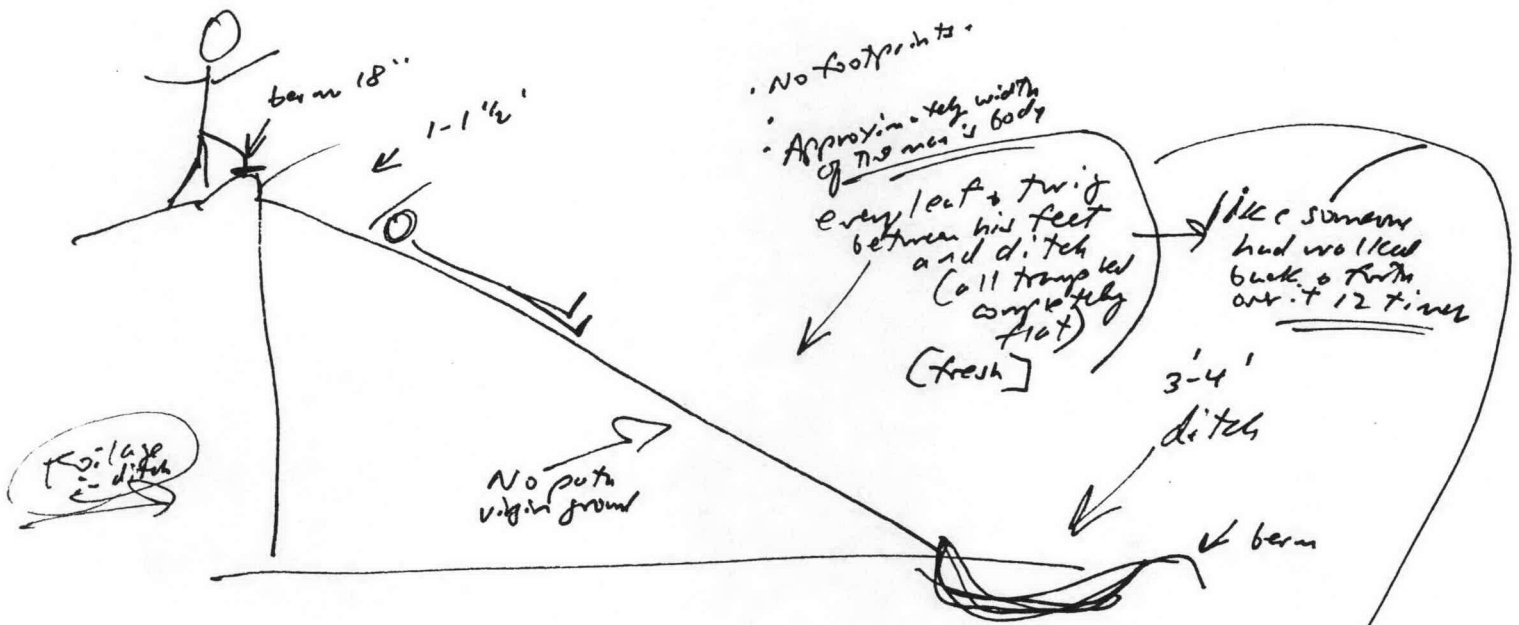 berm 18"
1-1 1/2'
• No footprints.
• Approximately width
of the man's body
every leaf + twig
between his feet
and ditch
(all trampled
completely
flat)
[fresh]
like someone
had walked
back & forth
over it 12 times
3'-4'
ditch
berm
No path
virgin ground
ditch